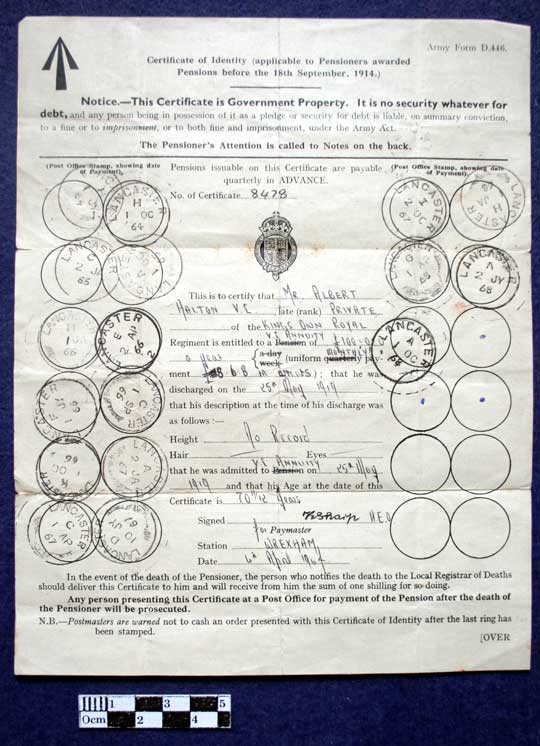 Army Form D.446.
Certificate of Identity (applicable to Pensioners awarded
Pensions before the 18th September, 1914.)
Notice.—This Certificate is Government Property. It is no security whatever for
debt, and any person being in possession of it as a pledge or security for debt is liable, on summary conviction,
to a fine or to imprisonment, or to both fine and imprisonment, under the Army Act.
The Pensioner's Attention is called to Notes on the back.
(Post Office Stamp, showing date
of Payment).
Pensions issuable on this Certificate are payable
quarterly in ADVANCE.
(Post Office Stamp, showing date
of Payment).
No. of Certificate 8478
LANCASTER
H
1 OC
64
LANCASTER
1 OC
67
LANCASTER
LANCASTER
C
2 JY
65
LANCASTER
A
2 JY
68
LANCASTER
A
1 OC
68
This is to certify that Mr ALBERT
HALTON V.C. late (rank) PRIVATE
of the KINGS OWN ROYAL
V.C ANNUITY
Regiment is entitled to a Pension of £100.0.0
MONTHLY
a year {a day week (uniform quarterly pay-
ment £8 6 8 in arrears); that he was
discharged on the 25th May 1919
that his description at the time of his discharge was
as follows :—
Height No RECORD
Hair Eyes
V.C ANNUITY
that he was admitted to Pension on 25th May
1919 and that his Age at the date of this
Certificate is 70 11/12 years
Signed H.E.O
for Paymaster
Station WREXHAM
Date 6th April 1964
In the event of the death of the Pensioner, the person who notifies the death to the Local Registrar of Deaths
should deliver this Certificate to him and will receive from him the sum of one shilling for so doing.
Any person presenting this Certificate at a Post Office for payment of the Pension after the death of
the Pensioner will be prosecuted.
N.B.—Postmasters are warned not to cash an order presented with this Certificate of Identity after the last ring has
been stamped.
[OVER
1 3 5
0cm 2 4